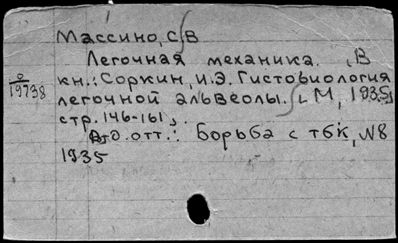 Массино, С В
Легочная механика. , В
кн.: Соркин, И.Э. Гистовиология
легочной альвеолы. , М, 1935,
стр. 146-161,.
Отд. отт.: Борьба с тбк, N8
1935
0/19738